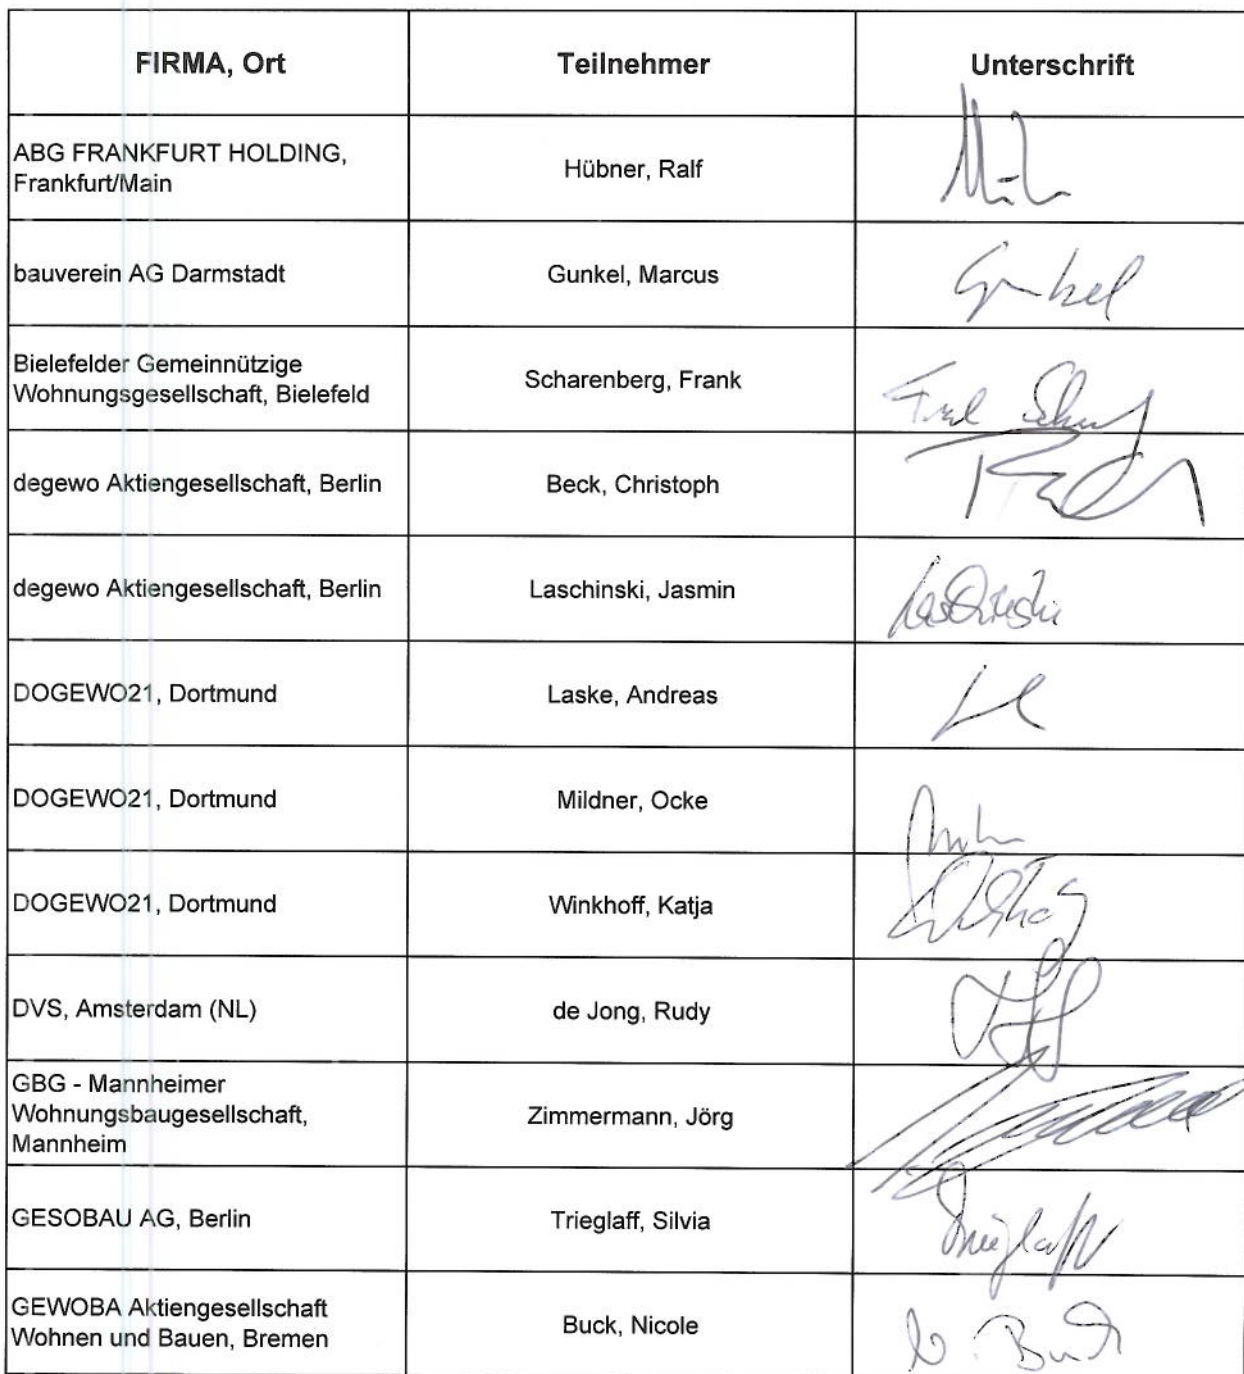 FIRMA, Ort
Teilnehmer
Unterschrift
ABG FRANKFURT HOLDING,
Frankfurt/Main
Hübner, Ralf
bauverein AG Darmstadt
Gunkel, Marcus
Gunkel
Bielefelder Gemeinnützige
Wohnungsgesellschaft, Bielefeld
Scharenberg, Frank
degewo Aktiengesellschaft, Berlin
Beck, Christoph
degewo Aktiengesellschaft, Berlin
Laschinski, Jasmin
Laschinski
DOGEWO21, Dortmund
Laske, Andreas
DOGEWO21, Dortmund
Mildner, Ocke
DOGEWO21, Dortmund
Winkhoff, Katja
DVS, Amsterdam (NL)
de Jong, Rudy
GBG - Mannheimer
Wohnungsbaugesellschaft,
Mannheim
Zimmermann, Jörg
GESOBAU AG, Berlin
Trieglaff, Silvia
Trieglaff
GEWOBA Aktiengesellschaft
Wohnen und Bauen, Bremen
Buck, Nicole
N. Buck